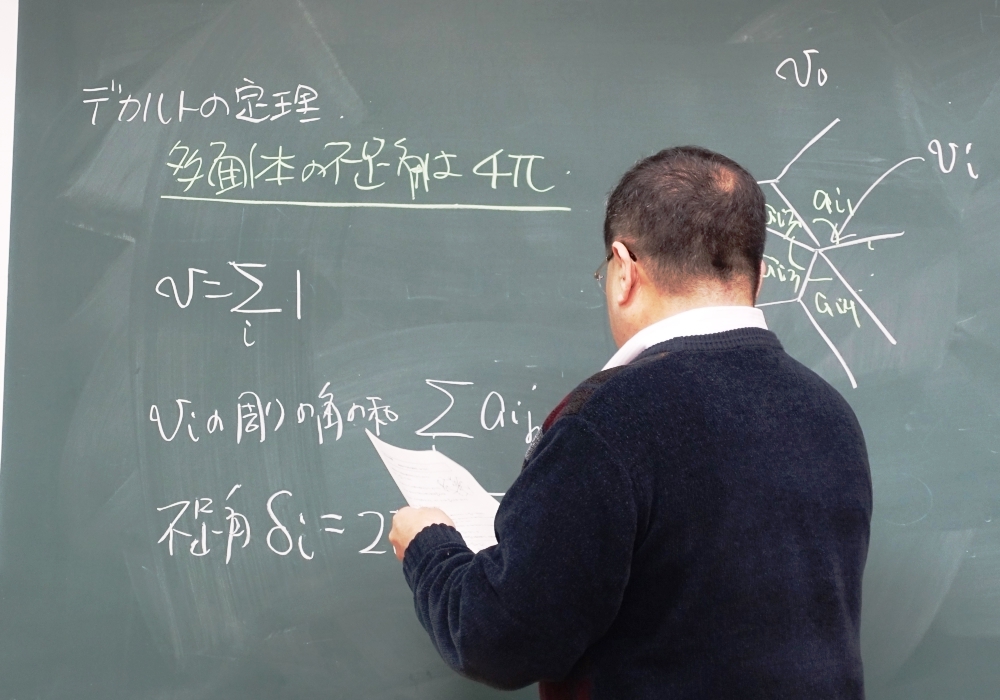 デカルトの定理.
多面体の不足角は 4π.
v = Σ 1
i
viの周りの角の和 Σ aij
不足角 δi = 2
v0
vi
ai1
ai2
ai3
ai4